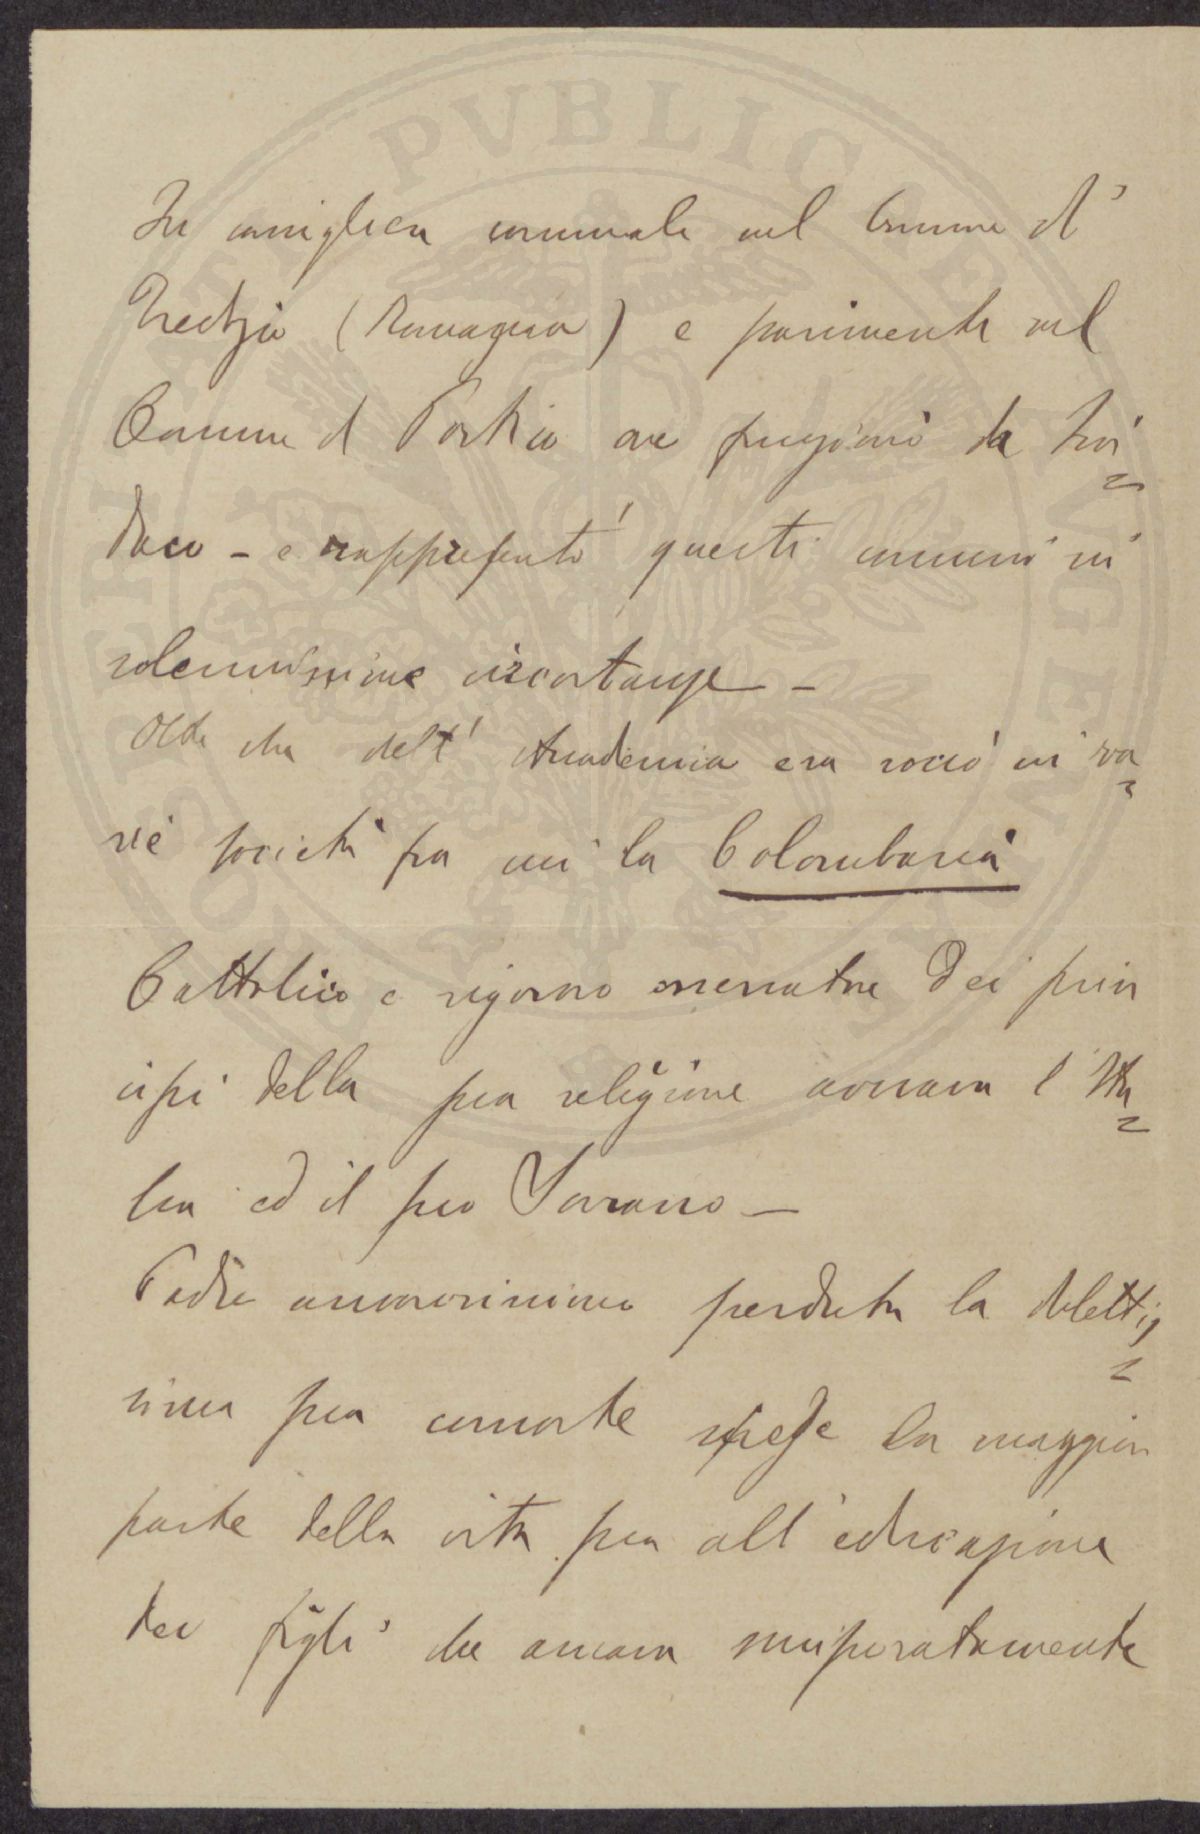 Fu consigliere comunale nel Comune di
Tredozio (Romagna) e parimente nel
Comune di Portico ove funzionò da Sin=
daco – e rappresentò questi comuni in
solennissime circostanze –
Oltre che dell' Accademia era socio in va=
rie società fra cui la Colombaria
Cattolico e rigoroso osservatore dei prin
cipi della sua religione amava l'Ita=
lia ed il suo Sovrano –
Padre amorosissimo perduta la dilettis=
sima sua consorte spese la maggior
parte della vita sua all'educazione
dei figli che amava